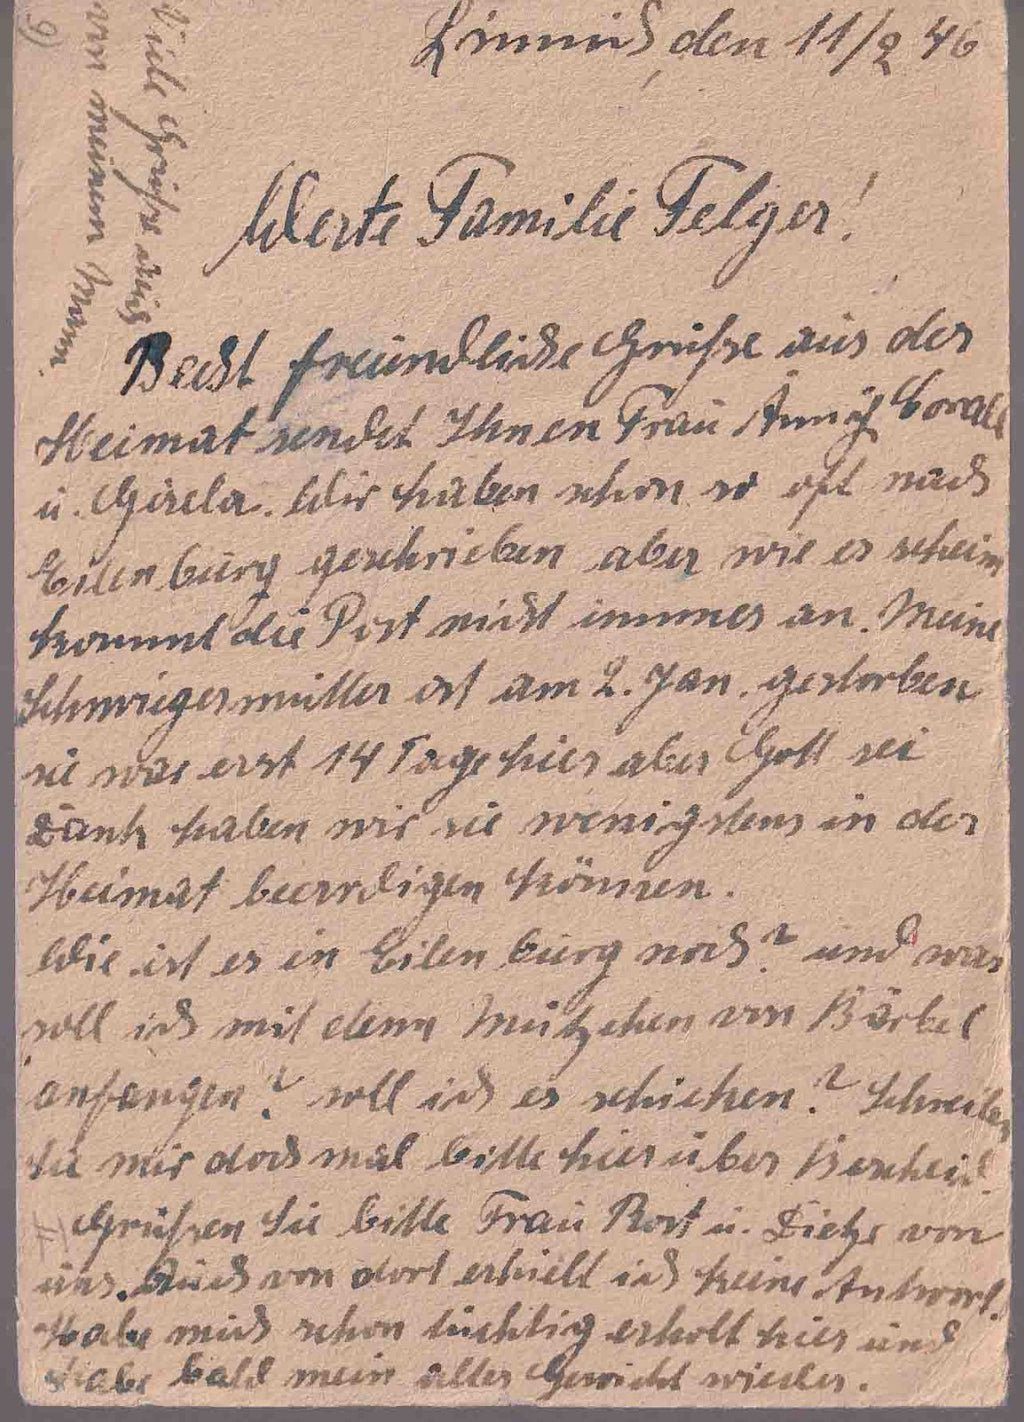 den 11/2 46
Werte Familie Felger!
Recht freundliche Grüße aus der
Heimat sendet Ihnen Frau Anny
u. Gisela. Wir haben schon so oft nach
Eilenburg geschrieben aber wie es scheint
kommt die Post nicht immer an. Meine
Schwiegermutter ist am 2. Jan. gestorben
sie war erst 14 Tage hier aber Gott sei
Dank haben wir sie wenigstens in der
Heimat beerdigen können.
Wie ist es in Eilenburg noch? und was
soll ich mit denn Mützchen von Bärbel
anfangen? soll ich es schicken? Schreiben
Sie mir doch mal bitte hier über Bescheid.
Grüßen Sie bitte Frau Rost u. Dietze von
uns. Auch von dort erhielt ich keine Antwort.
Habe mich schon tüchtig erholt hier und
habe bald mein altes Gewicht wieder.
Viele Grüße auch
von meinem Mann.